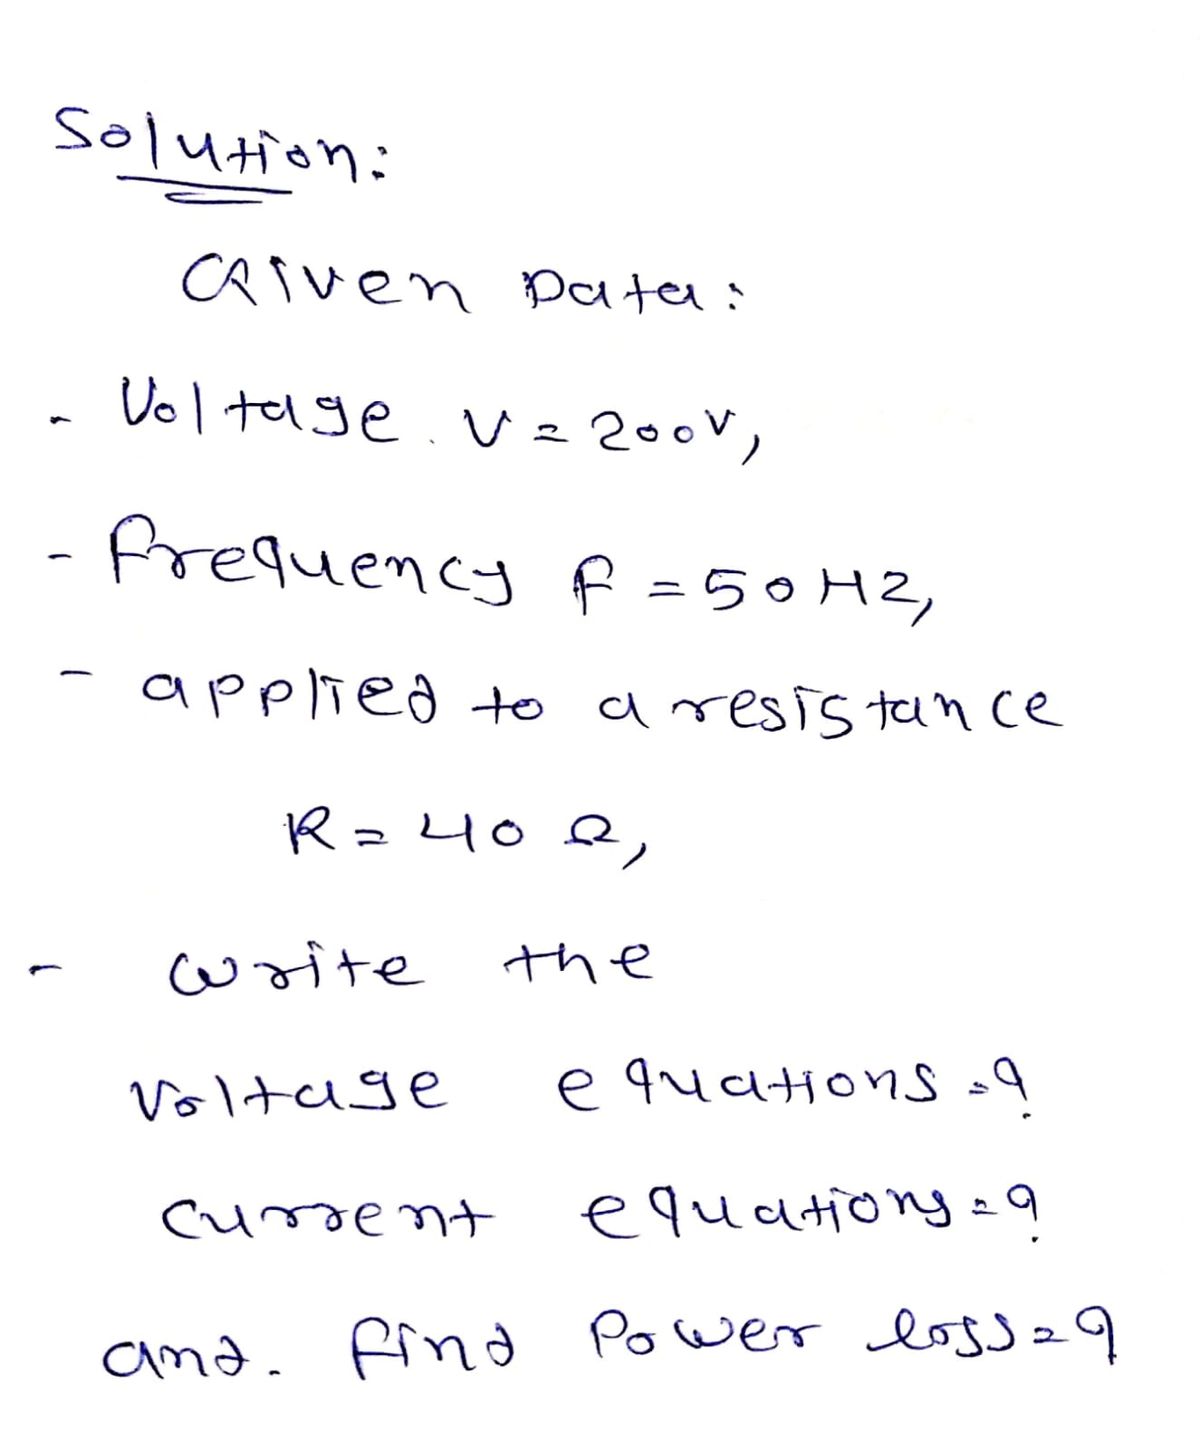 Solution:
Given Data:
- Voltage. V = 200V,
- frequency f = 50HZ,
- applied to a resistance
R = 40 Ω,
- write the
voltage equations = ?
current equations = ?
and. find Power loss = ?